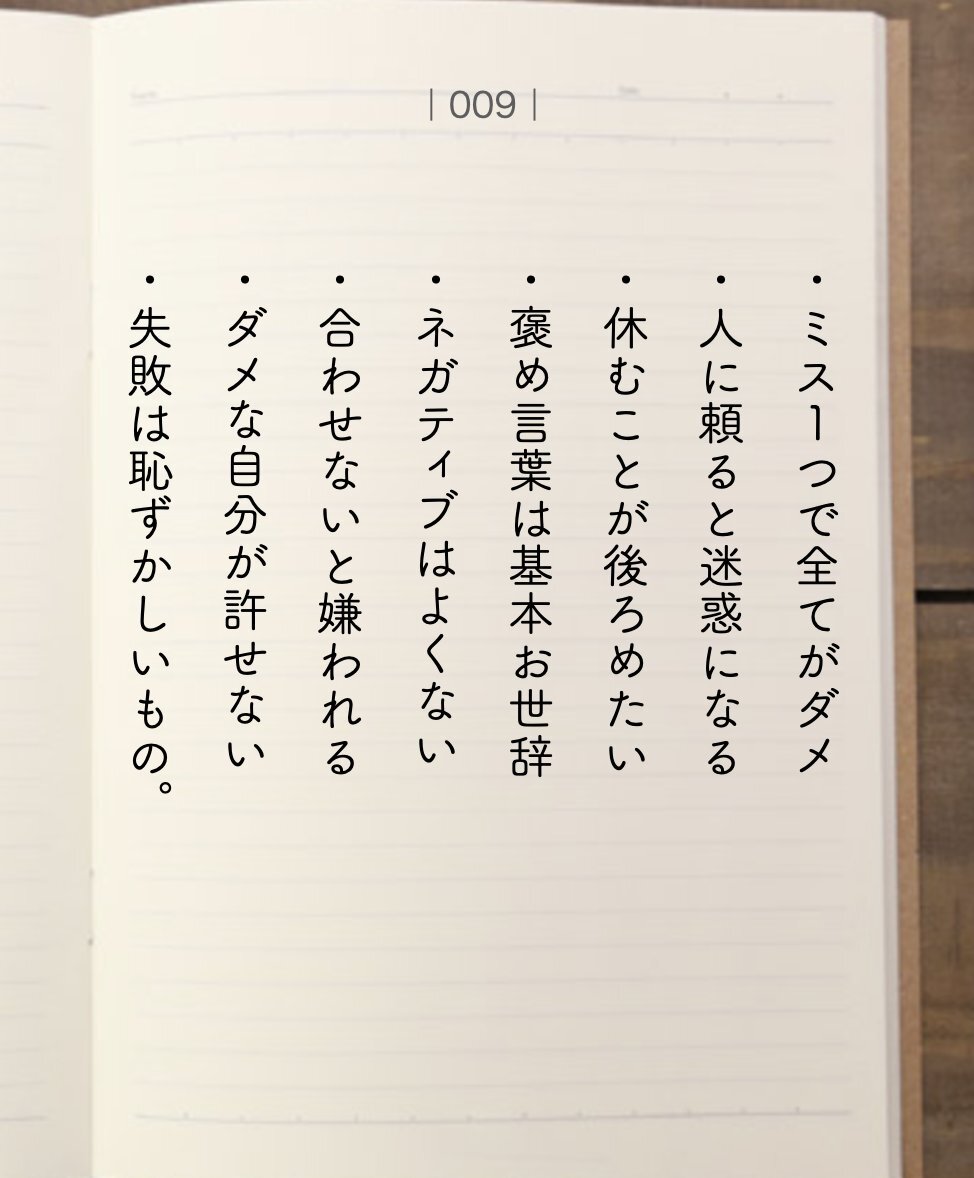 | 009 |
・ミス1つで全てがダメ
・人に頼ると迷惑になる
・休むことが後ろめたい
・褒め言葉は基本お世辞
・ネガティブはよくない
・合わせないと嫌われる
・ダメな自分が許せない
・失敗は恥ずかしいもの。